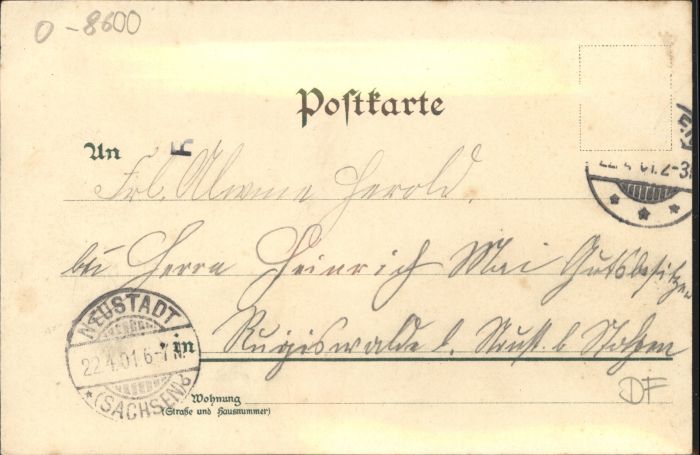 0-8600
Postkarte
An
Frl. Alwine Herold.
22.4.01.2-3
bei Herrn Heinrich Mai Gutsbesitzer
NEUSTADT
22.4.01 6-7 N.
(SACHSEN) b
in Rugiswalde b. Neust. b Stolpen
Wohnung
(Straße und Hausnummer)
DF